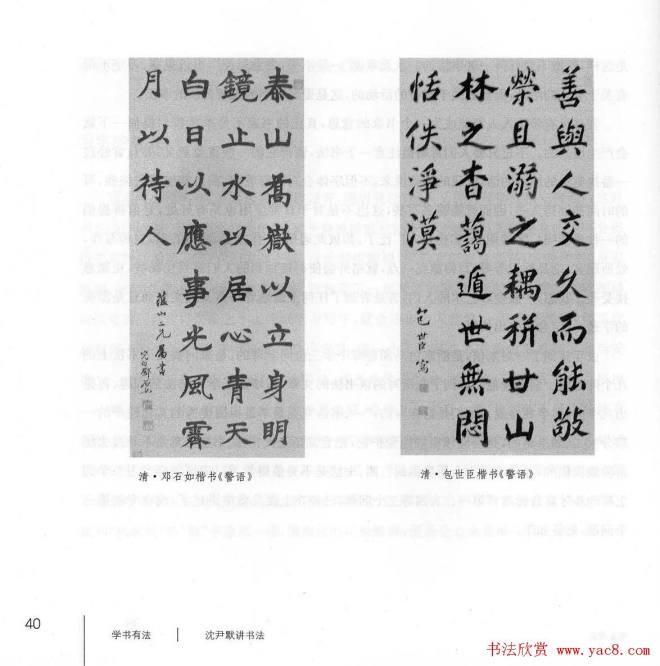 泰山喬嶽以立身明
鏡止水以居心青天
白日以應事光風霽
月以待人
蔭山二兄屬書
清·邓石如楷书《警语》
善與人交久而能敬
榮且溺之耦耕甘山
林之杳藹遁世無悶
恬佚淨漠
包世臣寫
清·包世臣楷书《警语》
40
学书有法
沈尹默讲书法
书法欣赏 www.yac8.com